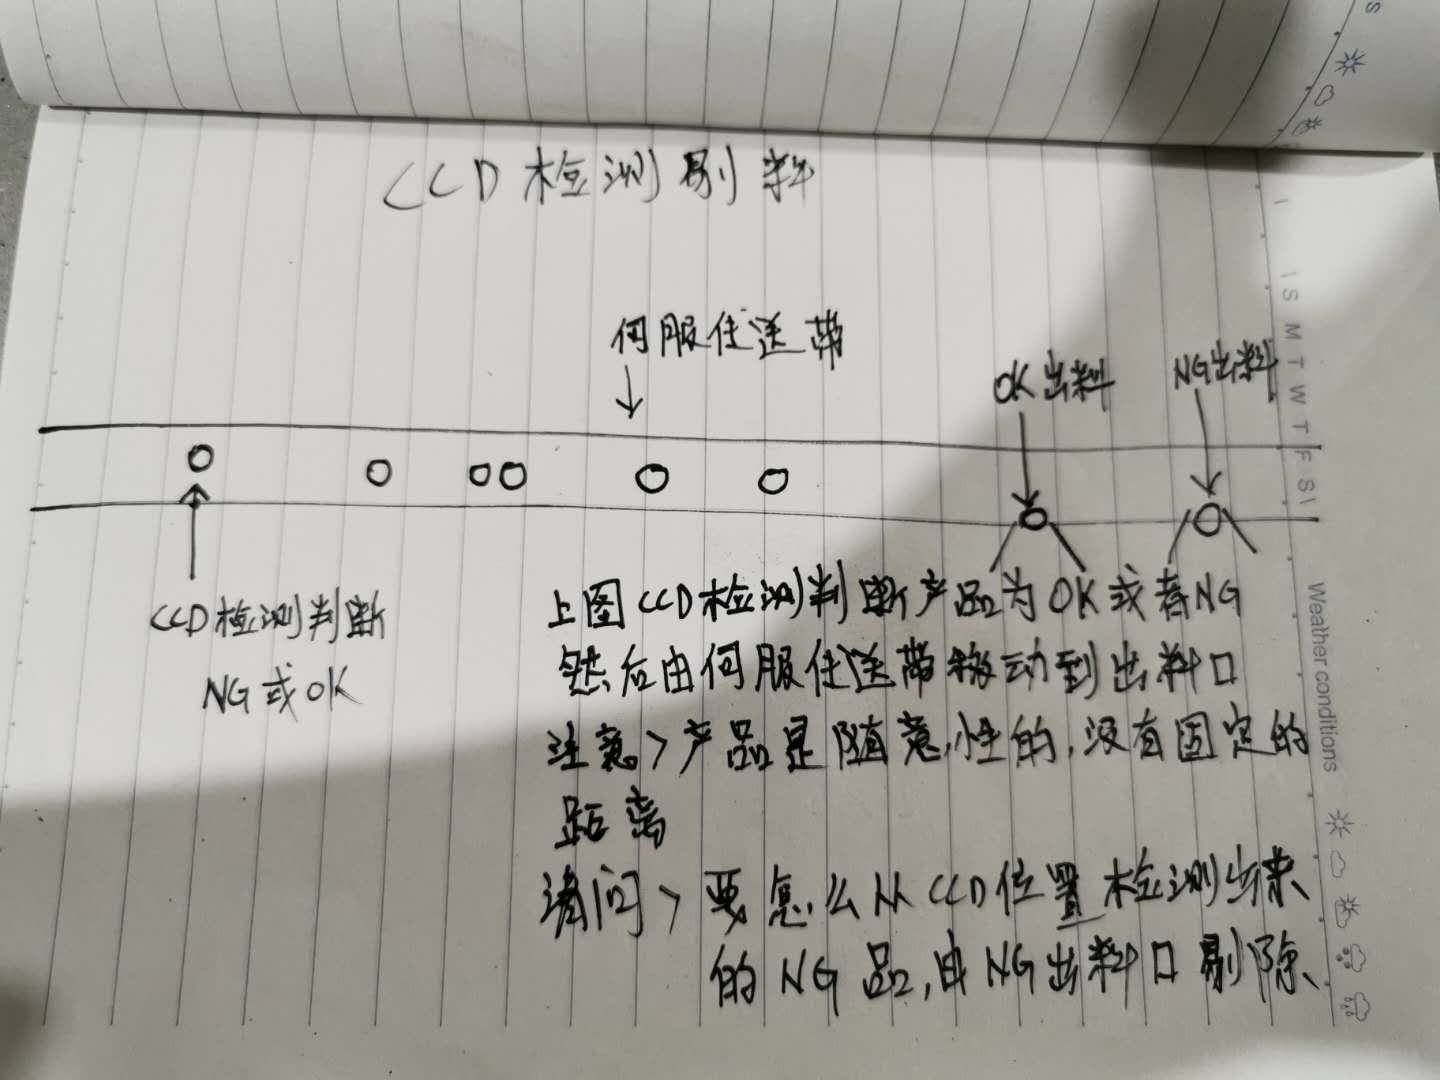 CCD检测剔料
伺服住送带
OK出料
NG出料
CCD检测判断
NG或OK
上图CCD检测判断产品为OK或者NG
然后由伺服住送带移动到出料口
注意>产品是随意性的,没有固定的
距离
请问>要怎么从CCD位置检测出来
的NG品,由NG出料口剔除
I S M T W T F S
Weather conditions